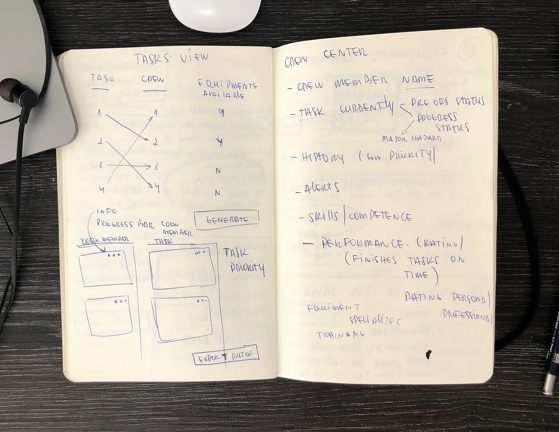 TASKS VIEW
TASK CREW EQUIPMENTS
AVAILABLE
1 1 Y
2 2 Y
3 3 N
4 4 N
INFO
PROGRESS BAR CREW
MEMBER
GENERATE
CREW MEMBER TASK
TASK
PRIORITY
EXPORT
CREW CENTER
- CREW MEMBER NAME
- TASK CURRENTLY
PROGRESS
STATUS
MAJOR HAZARD
- HISTORY (LOW PRIORITY)
- ALERTS
- SKILLS/COMPETENCE
- PERFORMANCE (RATING)
(FINISHES TASKS ON
TIME)
RATING PERSONAL
TRAINING